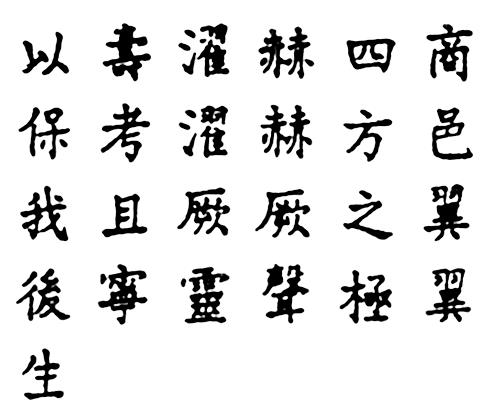 商邑翼翼
四方之極
赫赫厥聲
濯濯厥靈
壽考且寧
以保我後生